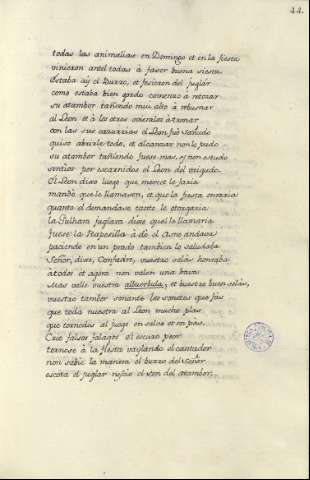 44.
todas las animalias en Domingo et en la fiesta
vinieron antel todas á faser buena siesta
Estaba aý el Burro, et fesieron del juglar
como estaba bien gordo comenzo á retozar
su atambor tañiendo mui alto á rebusnar
al Leon et á los otros querialos atronar
con las sus cazurrias el Leon fue sañudo
quiso abrirle todo, et alcanzar non le pudo
su atambor tañiendo fuese mas, y non estudo
sentios por escarnido el Leon del orejudo
El Leon dixo luego que merced le faria
mandó que le llamasen, et que la fiesta onraria
quanto él demandase tanto le otorgaria
la Gulhara juglara dixo quel le llamaria
fuese la Raposilla á dó el Asno andava
paciendo en un prado tambien lo saludaba
Señor, dixo, Confadre, vuestro solás honraba
á todos et agora non valen una hava
Mas valie vuestra albuerbula, et vuestro buen solás,
vuestro tambor sonante los sonetes que fas
que toda nuestra al Leon mucho plas
que tornedes al juego en salvo et en pas.
Creo falsos falagos él escapó peor
tornose á la fiesta baylando el cantador
non sabie la manera el burro del Señor
escota el juglar nescio el son del atambor.